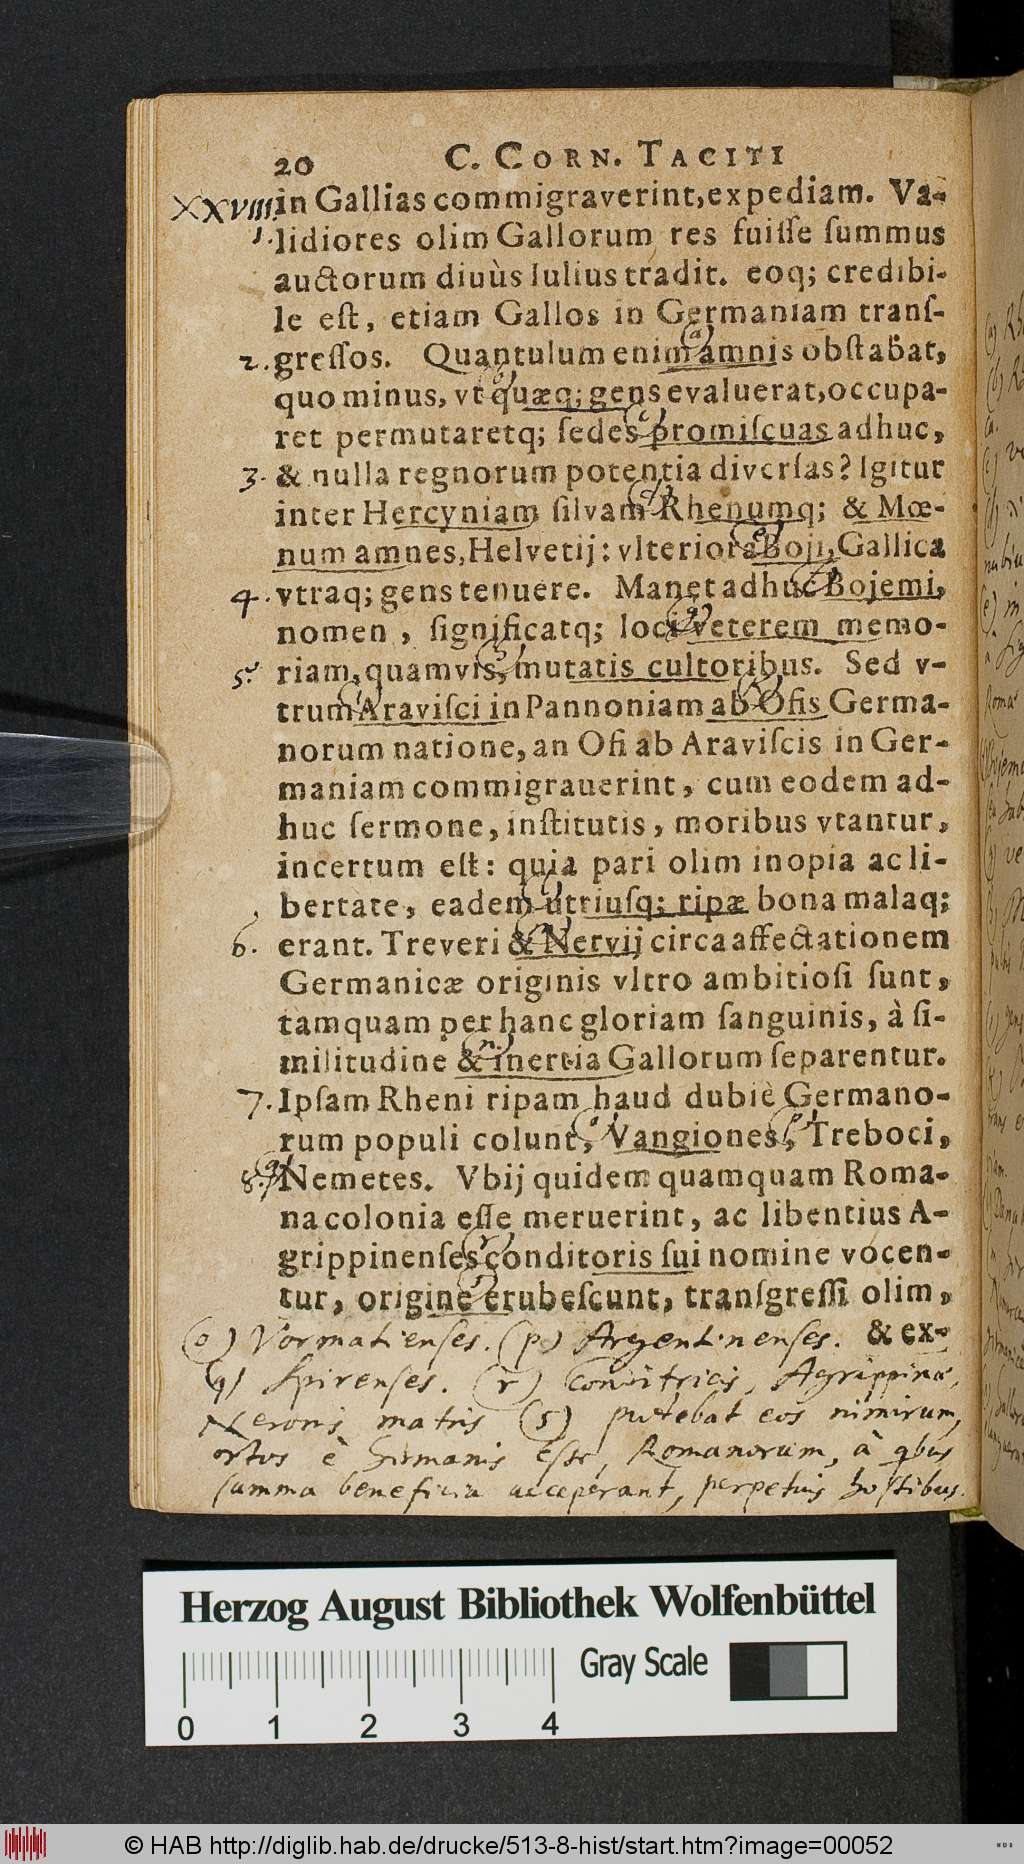 20 C. CORN. TACITI
XXVIII. in Gallias commigraverint, expediam. Va-
1. lidiores olim Gallorum res fuiſſe ſummus
auctorum divùs Iulius tradit. eoq; credibi-
le eſt, etiam Gallos in Germaniam tranſ-
2. greſſos. Quantulum enim (a) amnis obſtabat,
quo minus, vt (b) quæq; gens evaluerat, occupa-
ret permutaretq; ſedes (c) promiſcuas adhuc,
3. & nulla regnorum potentia diverſas? Igitur
inter Hercyniam ſilvam (d) Rhenumq; & Mœ-
num amnes, Helvetij: vlteriora (e) Boji, Gallica
4. vtraq; gens tenuere. Manet adhuc (f) Bojemi,
nomen, ſignificatq; loci (g) veterem memo-
5. riam, quamvis, (h) mutatis cultoribus. Sed v-
trum (i) Araviſci in Pannoniam ab (k) Oſis Germa-
norum natione, an Oſi ab Araviſcis in Ger-
maniam commigrauerint, cum eodem ad-
huc ſermone, inſtitutis, moribus vtantur,
incertum eſt: quia pari olim inopia ac li-
bertate, eadem (l) utriuſq; ripæ bona malaq;
6. erant. Treveri & (m) Nervij circa affectationem
Germanicæ originis vltro ambitioſi ſunt,
tamquam per hanc gloriam ſanguinis, à ſi-
militudine & (n) inertia Gallorum ſeparentur.
7. Ipſam Rheni ripam haud dubiè Germano-
rum populi colunt, (o) Vangiones, (p) Treboci,
8. (q) Nemetes. Vbij quidem quamquam Roma-
na colonia eſſe meruerint, ac libentius A-
grippinenſes (r) conditoris ſui nomine vocen-
tur, origine (s) erubeſcunt, tranſgreſſi olim,
& ex-
(o) Vormatienſes. (p) Argentinenſes.
(q) Spirenſes. (r) Conditricis, Agrippinæ,
Neronis matris (s) putebat eos nimirum,
ortos è Germanis eſſe, Romanorum, à qbus
ſumma beneficia acceperant, perpetuis hoſtibus.
Herzog August Bibliothek Wolfenbüttel
Gray Scale
0 1 2 3 4
© HAB http://diglib.hab.de/drucke/513-8-hist/start.htm?image=00052